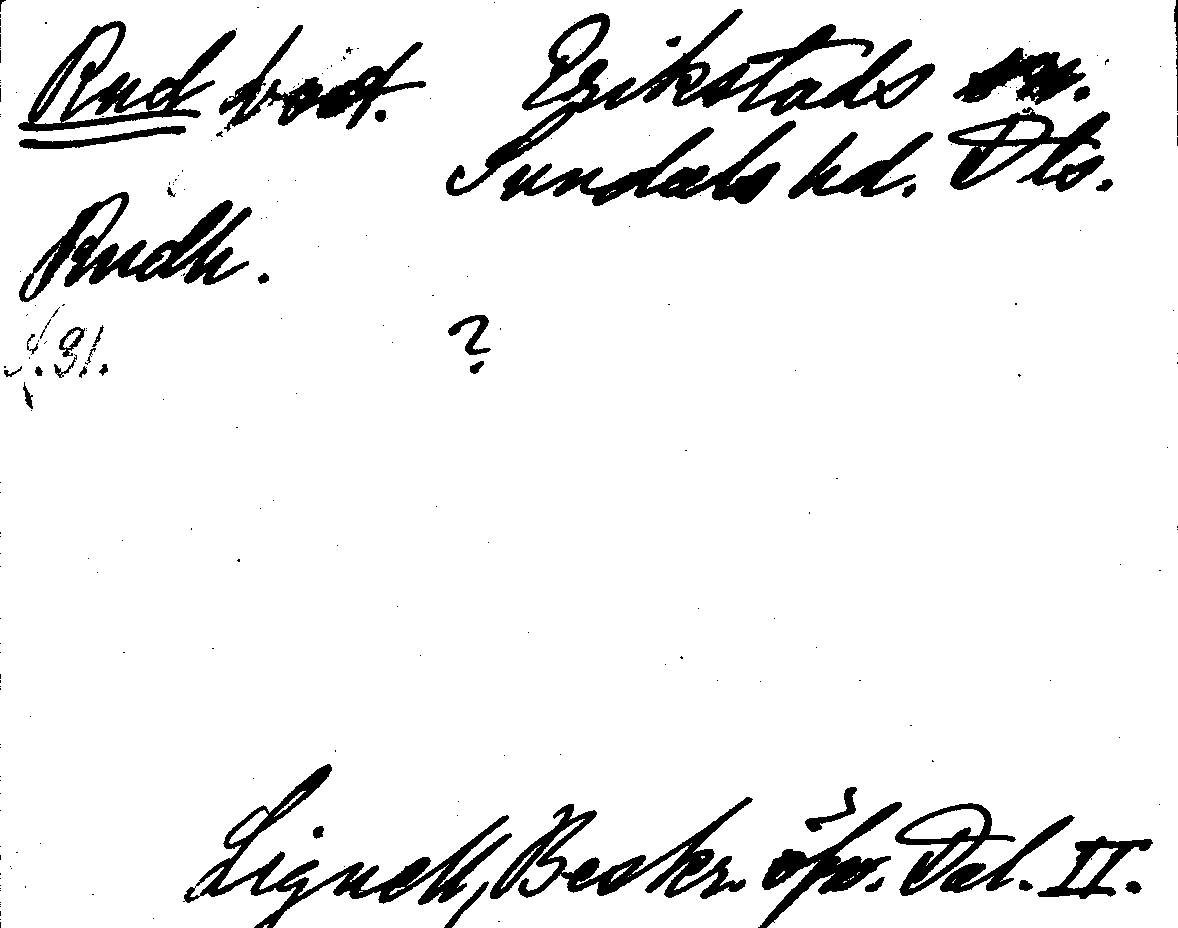 Rud bost. Erikstads sn.
Sundals hd. Dls.
Rudh.
S. 31. ?
Lignell, Beskr. öfv. Dal. II.